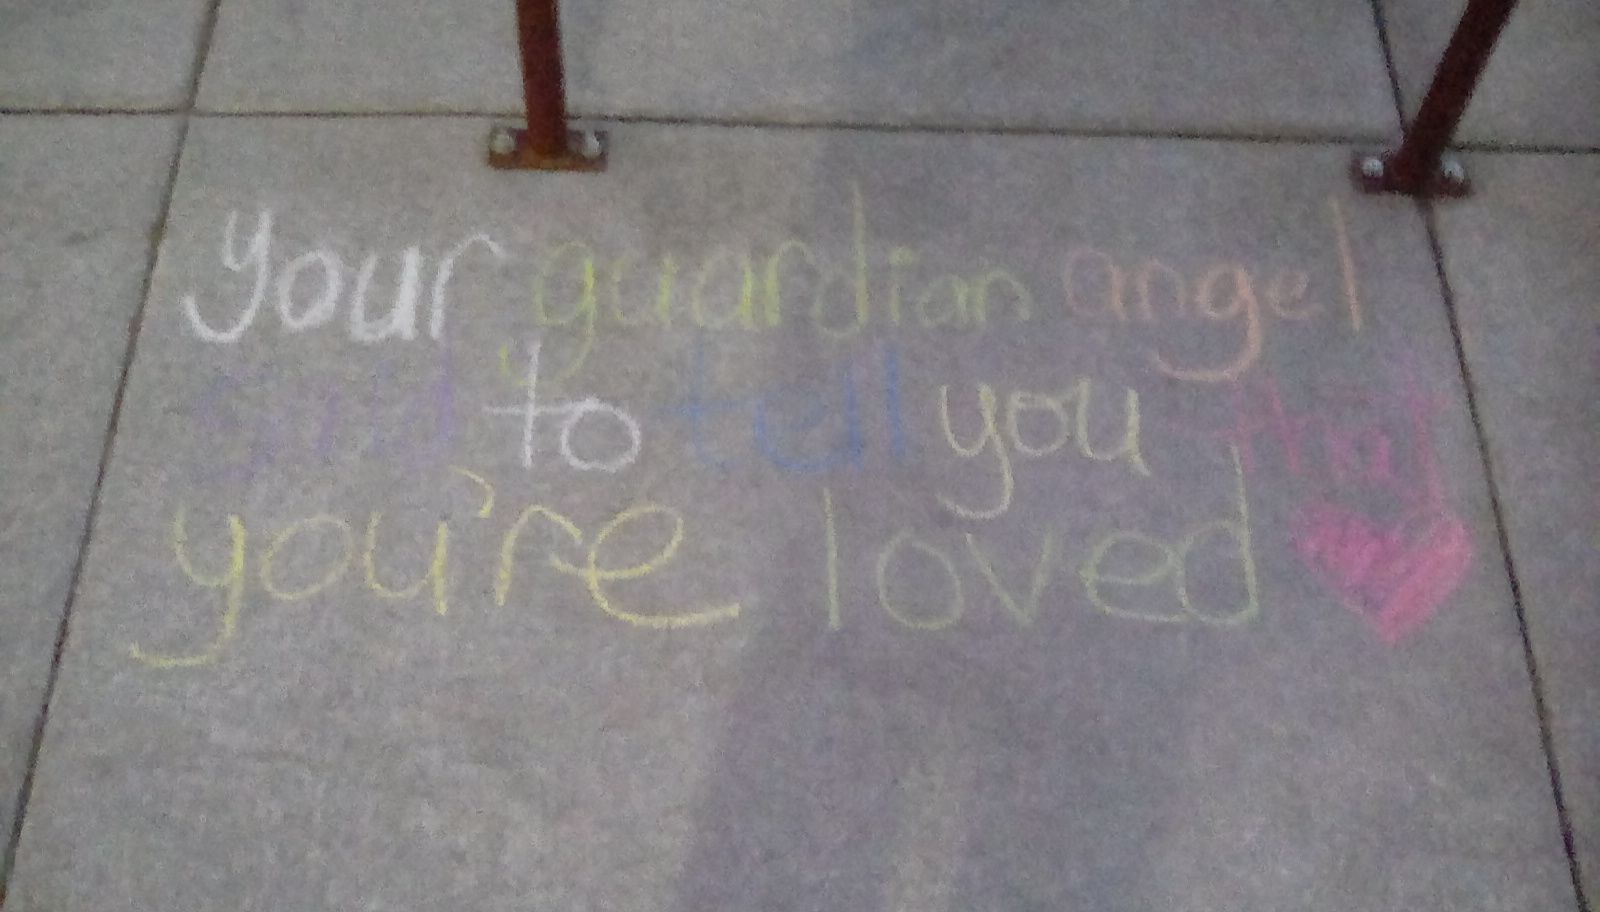 your guardian angel
said to tell you that
you're loved